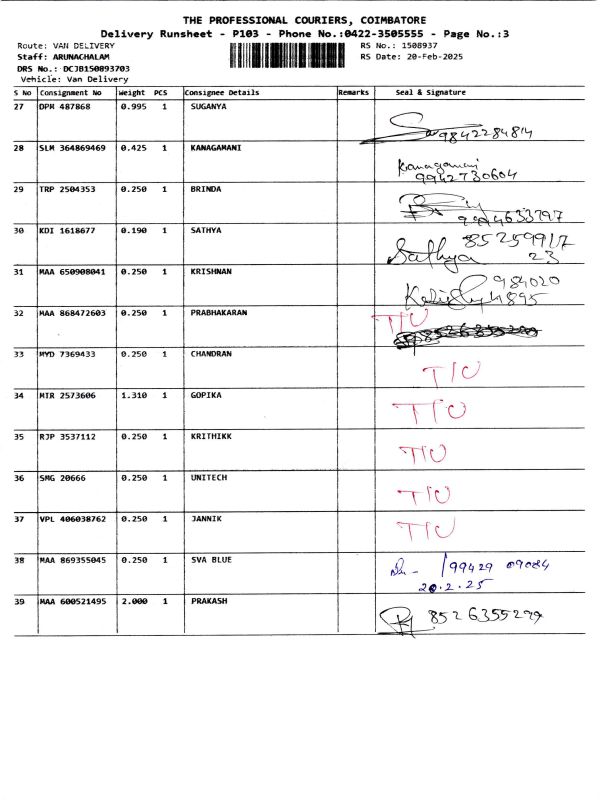 THE PROFESSIONAL COURIERS, COIMBATORE
Delivery Runsheet - P103 - Phone No.:0422-3505555 - Page No.:3
Route: VAN DELIVERY RS No.: 1508937
Staff: ARUNACHALAM RS Date: 20-Feb-2025
DRS No.: DCJB150893703
Vehicle: Van Delivery
S No Consignment No Weight PCS Consignee Details Remarks Seal & Signature
27 DPM 487868 0.995 1 SUGANYA
9842284814
28 SLM 364869469 0.425 1 KANAGAMANI
Kanagamani
9942730604
29 TRP 2504353 0.250 1 BRINDA
9944633797
30 KDI 1618677 0.190 1 SATHYA 85259917
Sathya 23
31 MAA 650908041 0.250 1 KRISHNAN 984020
4895
32 MAA 868472603 0.250 1 PRABHAKARAN T/C
33 MYD 7369433 0.250 1 CHANDRAN
T/C
34 MTR 2573606 1.310 1 GOPIKA
T/C
35 RJP 3537112 0.250 1 KRITHIKK
T/C
36 SMG 20666 0.250 1 UNITECH
T/C
37 VPL 406038762 0.250 1 JANNIK
T/C
38 MAA 869355045 0.250 1 SVA BLUE
99429 09084
20.2.25
39 MAA 600521495 2.000 1 PRAKASH
8526355299